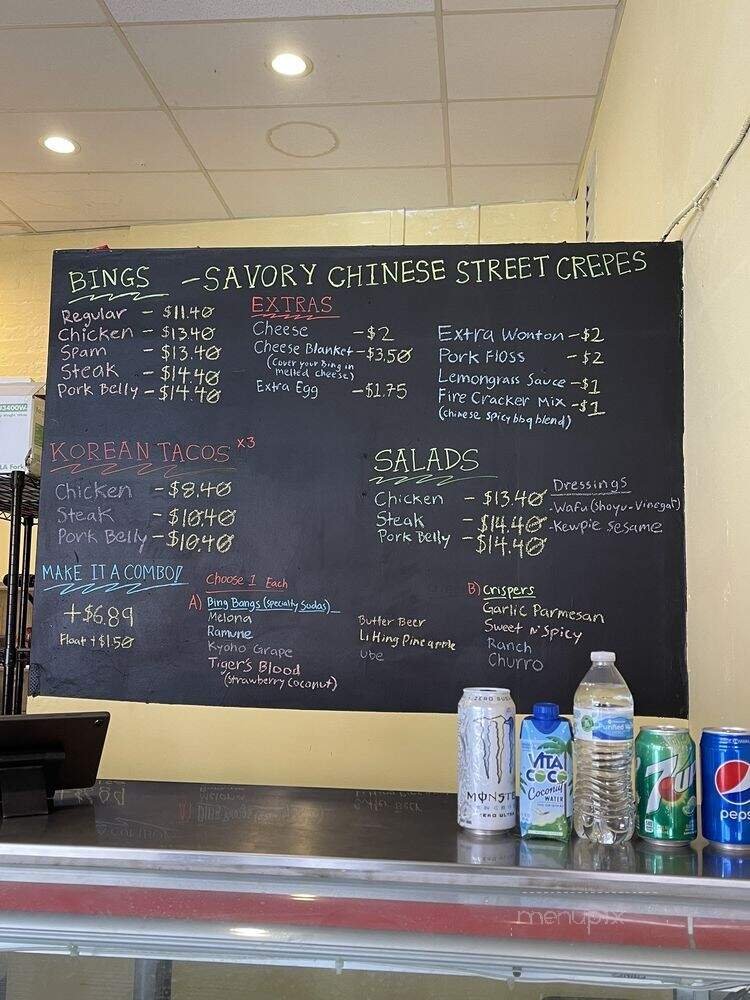 BINGS - SAVORY CHINESE STREET CREPES
Regular - $11.40
Chicken - $13.40
Spam - $13.40
Steak - $14.40
Pork Belly - $14.40
EXTRAS
Cheese - $2
Cheese Blanket - $3.50
(Cover your Bing in
melted cheese)
Extra Egg - $1.75
Extra Wonton - $2
Pork Floss - $2
Lemongrass Sauce - $1
Fire Cracker Mix - $1
(chinese spicy bbq blend)
KOREAN TACOS x3
Chicken - $8.40
Steak - $10.40
Pork Belly - $10.40
SALADS
Chicken - $13.40
Steak - $14.40
Pork Belly - $14.40
Dressings
- Wafu (Shoyu-Vinegar)
- Kewpie Sesame
MAKE IT A COMBO!
+$6.89
Float + $1.50
Choose 1 Each
A) Bing Bangs (specialty Sodas)
Melona
Ramune
Kyoho Grape
Tiger's Blood
(Strawberry Coconut)
Butter Beer
Li Hing Pineapple
ube
B) Crispers
Garlic Parmesan
Sweet N' Spicy
Ranch
Churro
ZERO SUG
MONSTE
ZERO ULTRA
VITA
COCO
Coconut
WATER
Purified
7UP
peps
menupix